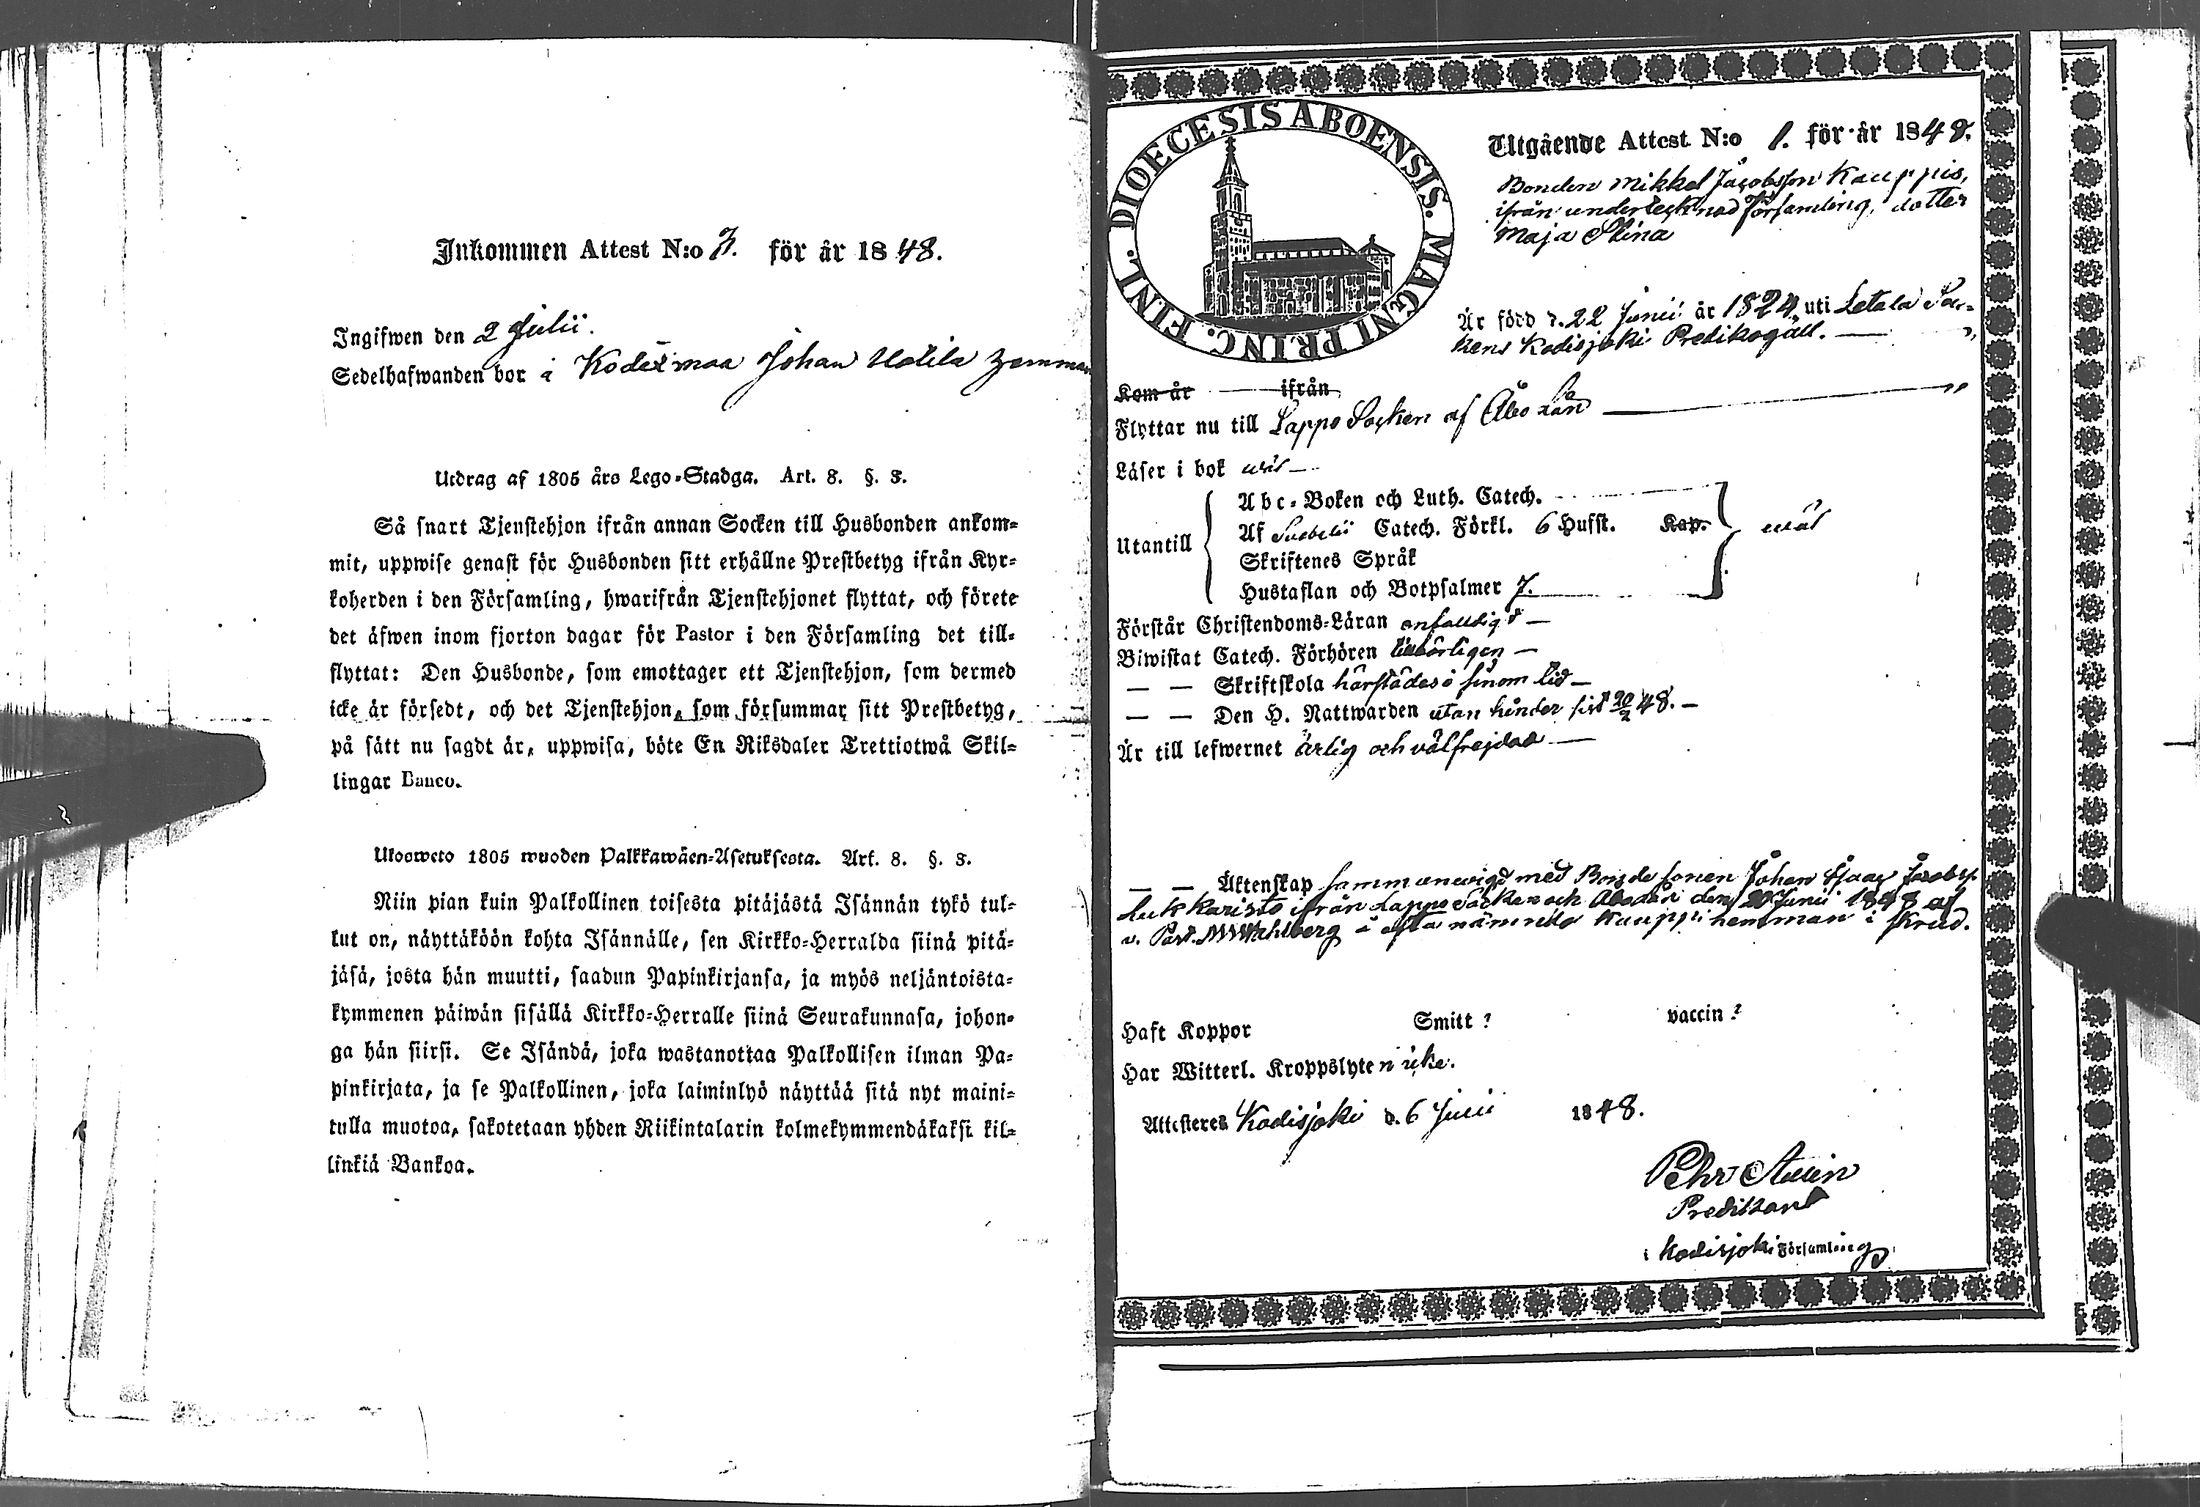 Inkommen Attest N:o 7. för år 1848.
Ingifwen den 2 Julii.
Sedelhafwanden bor i Kodixmaa Johan Uotila hemman
Utdrag af 1805 års Lego-Stadga. Art. 8. §. 3.
Så snart Tjenstehjon ifrån annan Socken till Husbonden ankom-
mit, uppwise genast för Husbonden sitt erhållne Prestbetyg ifrån Kyr-
koherden i den Församling, hwarifrån Tjenstehjonet flyttat, och förete
det äfwen inom fjorton dagar för Pastor i den Församling det till-
flyttat: Den Husbonde, som emottager ett Tjenstehjon, som dermed
icke är försedt, och det Tjenstehjon, som försummar sitt Prestbetyg,
på sätt nu sagdt är, uppwisa, böte En Riksdaler Trettiotwå Skil-
lingar Banco.
Ulosweto 1805 wuoden Palkkawäen-Asetuksesta. Art. 8. §. 3.
Niin pian kuin Palkollinen toisesta pitäjästä Isännän tykö tul-
lut on, näyttäköön kohta Isännälle, sen Kirkko-Herralda siinä pitä-
jäsä, josta hän muutti, saadun Papinkirjansa, ja myös neljäntoista-
kymmenen päiwän sisällä Kirkko-Herralle siinä Seurakunnasa, johon-
ga hän siirsi. Se Isändä, joka wastanottaa Palkollisen ilman Pa-
pinkirjata, ja se Palkollinen, joka laiminlyö näyttää sitä nyt maini-
tulla muotoa, sakotetaan yhden Riikintalarin kolmekymmendäkaksi kil-
linkiä Bankoa.
DIOECESIS ABOENSIS. MAGNI PRINC. FINL.
Utgående Attest N:o 1. för år 1848.
Bonden Mikkel Jacobsson Kauppis,
ifrån undertecknad församling, dotter
Maja Stina
Är född d. 22 Junii år 1824 uti Letala Soc-
kens Kodisjoki Predikogäll.
Kom år ifrån
Flyttar nu till Lappo Socken af Åbo Län
Läser i bok wäl
Utantill
Abc-Boken och Luth. Catech.
Af Svebilii Catech. Förkl. 6 Hufst. Kap.
Skriftenes Språk
Hustaflan och Botpsalmer 7.
wäl
Förstår Christendoms-Läran enfaldigt
Biwistat Catech. Förhören tillbörligen
— — Skriftskola härstädes i sinom tid
— — Den H. Nattwarden utan hinder sist 20/2 48.
Är till lefwernet ärlig och välfrejdad
— — Äktenskap sammanvigd med Bonde sonen Johan Isaac Jacobss.
Karisto ifrån Lappo Socken och den 20 Junii 1848 af
v. Past. Wahlberg å ofta nämnde Kauppi hemman i
Haft Koppor Smitt? vaccin?
Har Witterl. Kroppslyten icke.
Attesteres Kodisjoki d. 6 Julii 1848.
Pehr
Predikant
i Kodisjoki Församling